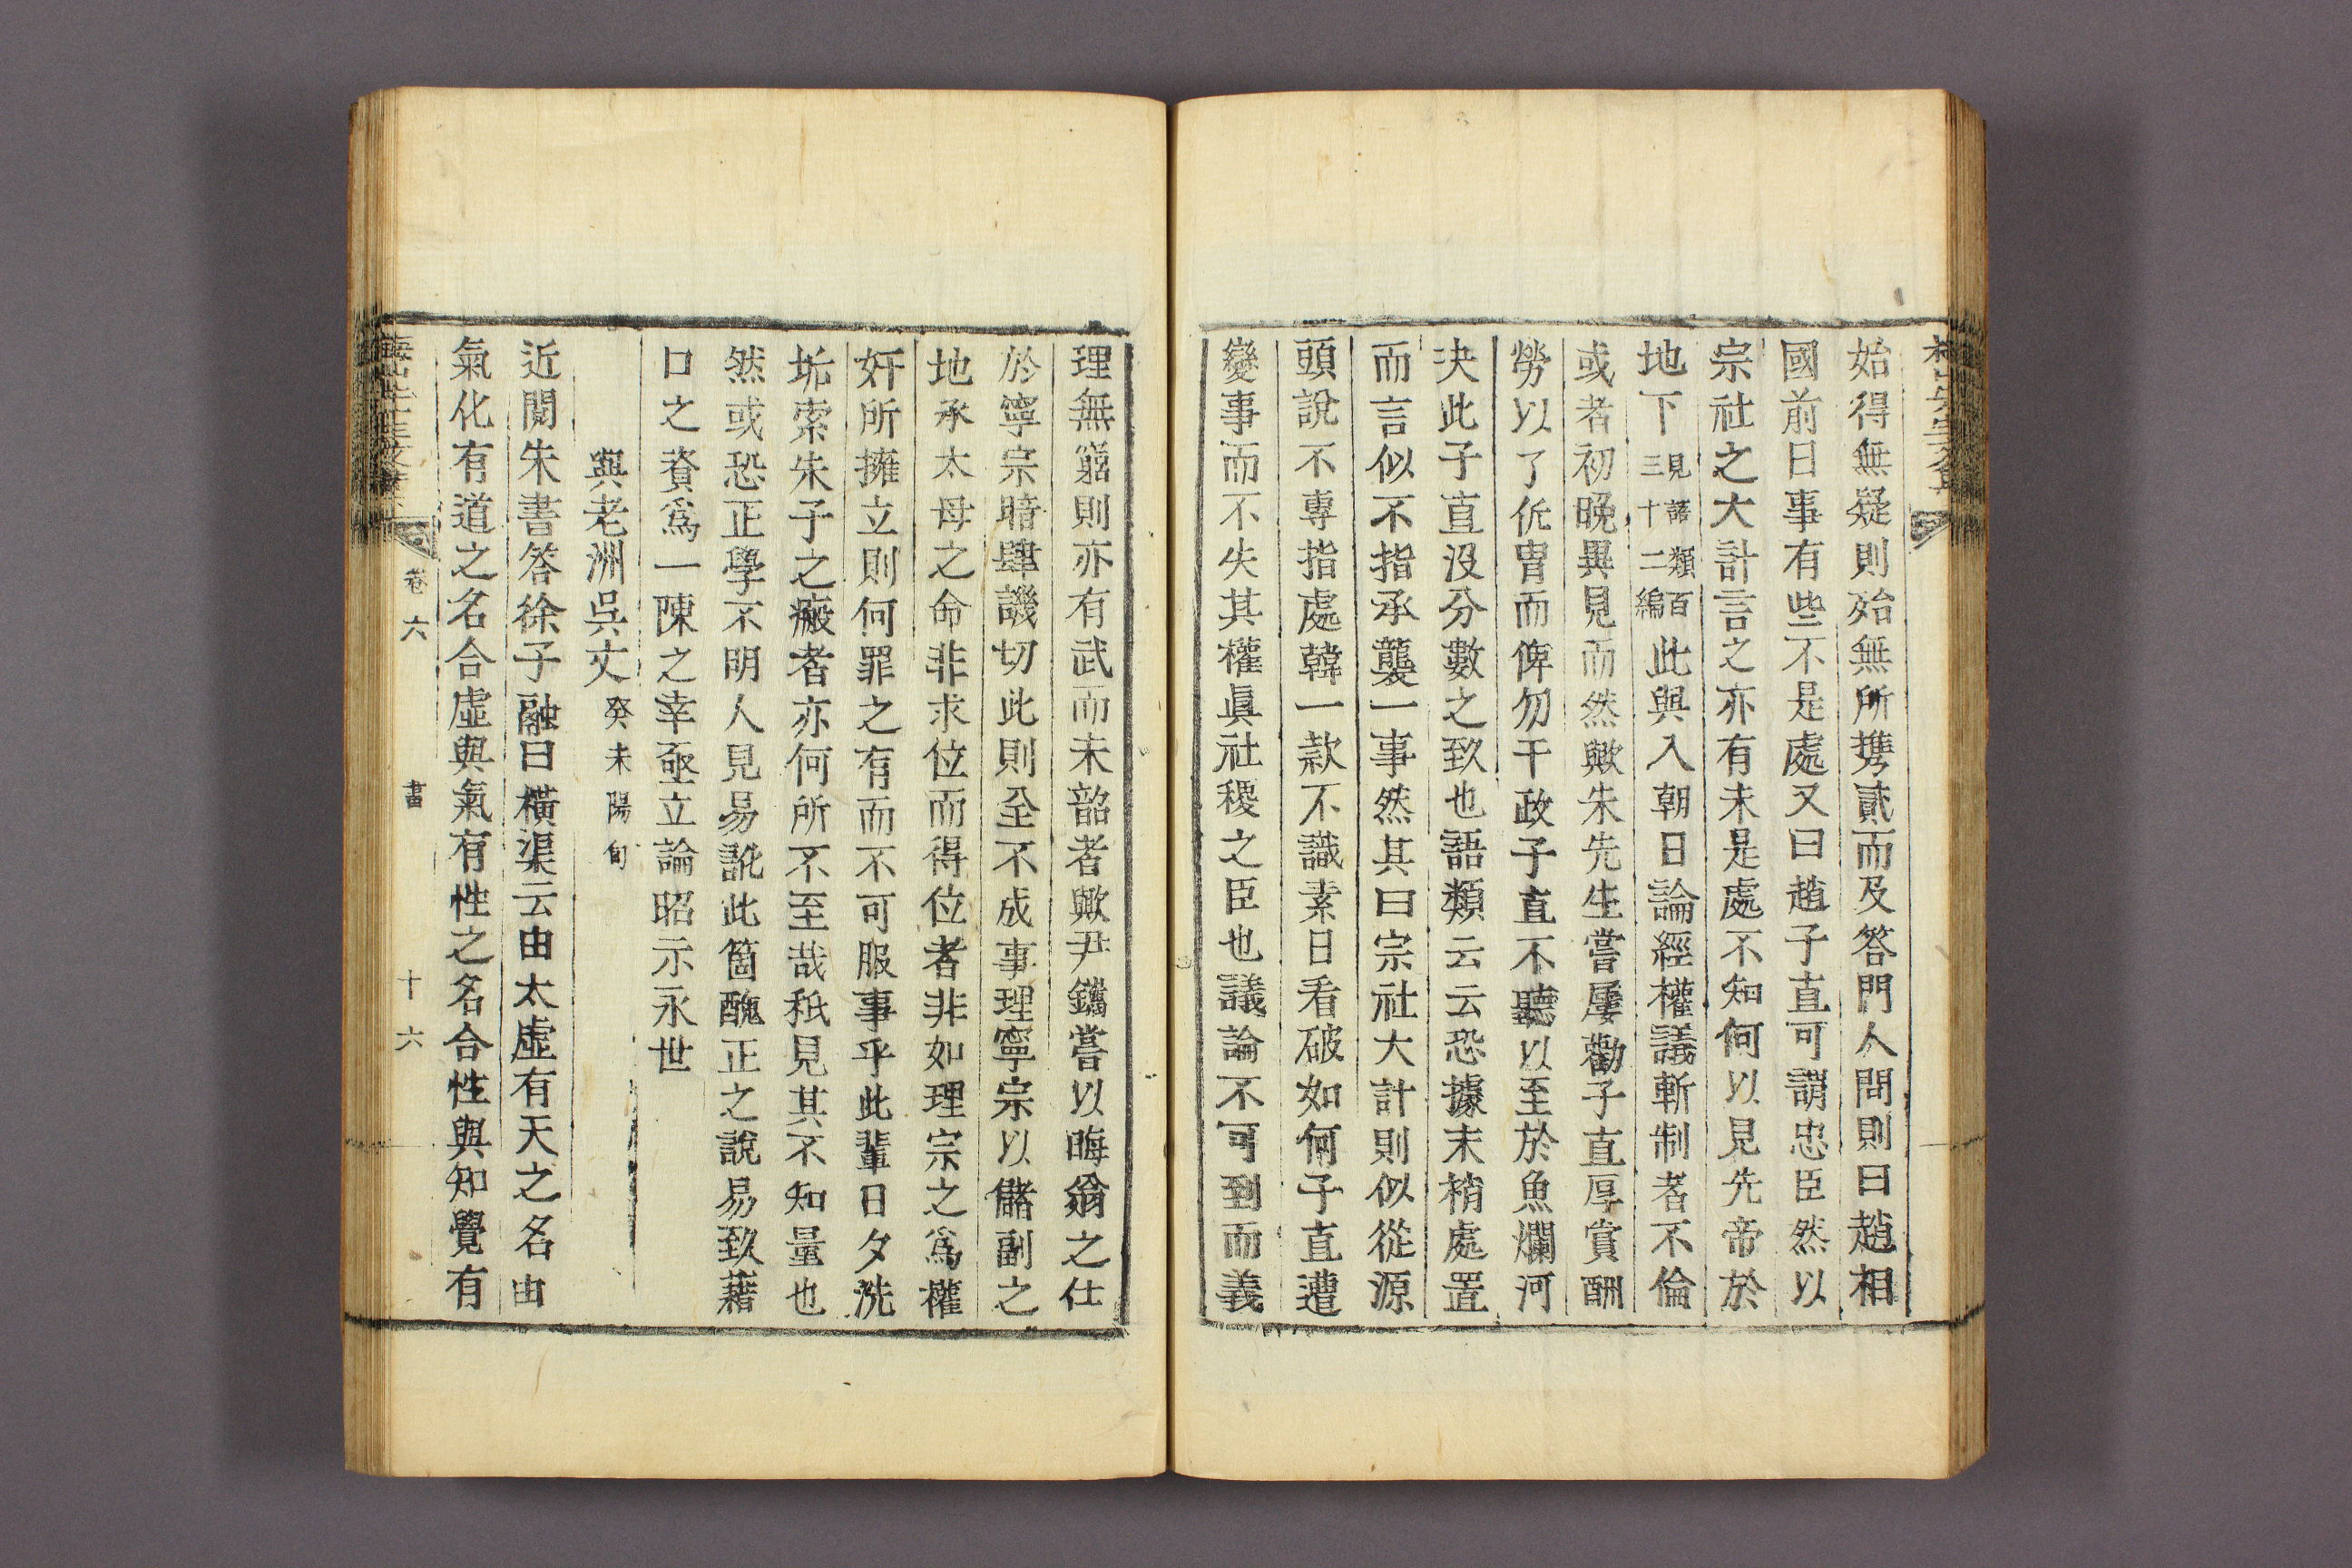 始得無疑則殆無所携貳而及答門人問則曰趙相
國前日事有些不是處又曰趙子直可謂忠臣然以
宗社之大計言之亦有未是處不知何以見先帝於
地下見語類百三十二編此與入朝日論經權議斬制者不倫
或者初晚異見而然歟朱先生嘗屢勸子直厚賞酬
勞以了侂冑而俾勿干政子直不聽以至於魚爛河
决此子直没分數之致也語類云云恐據末梢處置
而言似不指承襲一事然其曰宗社大計則似從源
頭說不專指處韓一款不識素日看破如何子直遭
變事而不失其權眞社稷之臣也議論不可到而義
理無窮則亦有武而未韶者歟尹鑴嘗以晦翁之仕
於寧宗暗肆譏切此則全不成事理寧宗以儲副之
地承太母之命非求位而得位者非如理宗之爲權
奸所擁立則何罪之有而不可服事乎此輩日夕洗
垢索朱子之瘢者亦何所不至哉秖見其不知量也
然或恐正學不明人見易訛此箇醜正之說易致藉
口之資爲一陳之幸亟立論昭示永世
與老洲吳丈癸未陽旬
近閱朱書答徐子融曰橫渠云由太虛有天之名由
氣化有道之名合虛與氣有性之名合性與知覺有
卷六
書
十六